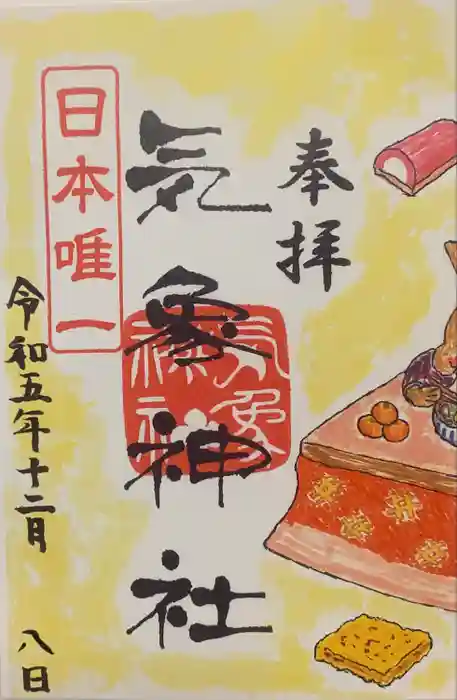 奉拝
気象神社
気象神社
日本唯一
令和五年十二月 八日